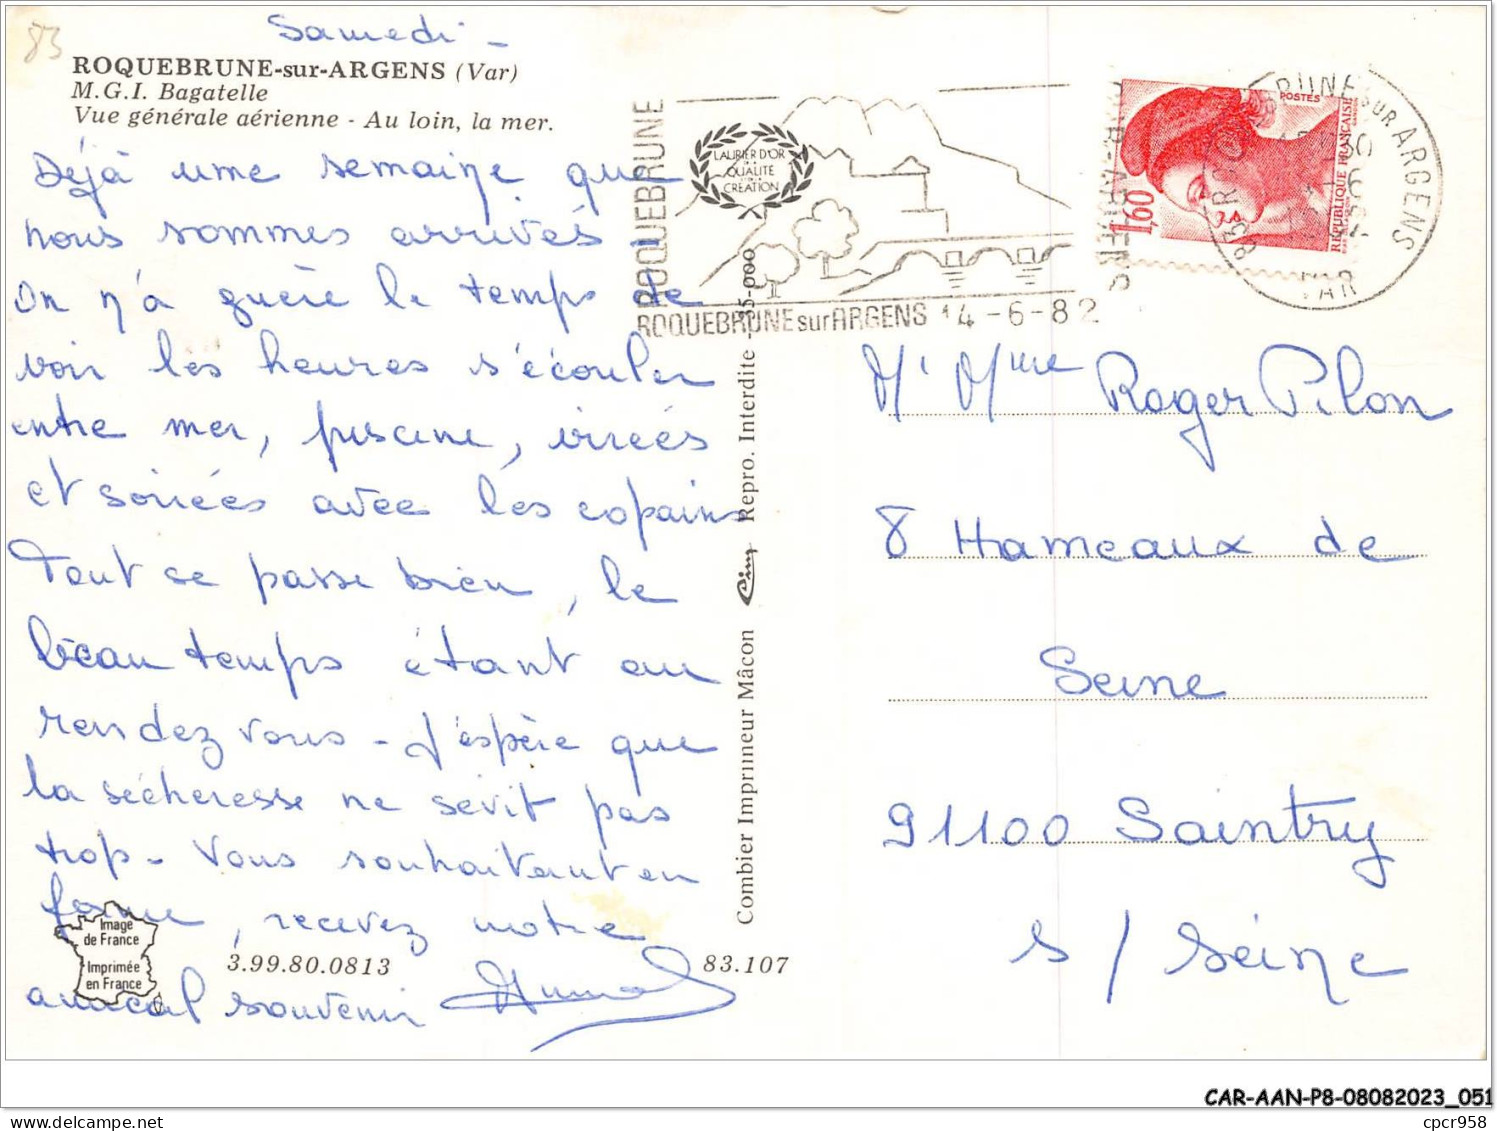 83
Samedi -
ROQUEBRUNE-sur-ARGENS (Var)
M.G.I. Bagatelle
Vue générale aérienne - Au loin, la mer.
Déjà une semaine que
nous sommes arrivés
On n'a guère le temps de
voir les heures s'écouler
entre mer, piscine, virées
et soirées avec les copains
Tout se passe bien, le
beau temps étant au
rendez vous - J'espère que
la sécheresse ne sevit pas
trop - Vous souhaitant en
forme, recevez notre
amical souvenir
Image
de France
Imprimée
en France
3.99.80.0813
83.107
Combier Imprimeur Mâcon Cim Repro. Interdite - 35-000
ROQUEBRUNE
ROQUEBRUNE
LAURIER D'OR
DE LA
QUALITE
CREATION
ROQUEBRUNE sur ARGENS 14-6-82
POSTES
1,60
REPUBLIQUE FRANÇAISE
83 ROQUEBRUNE SUR ARGENS
VAR
Mr Mme Roger Pilon
8 Hameaux de
Seine
91100 Saintry
s/Seine
CAR-AAN-P8-08082023_051
www.delcampe.net
cpcr958